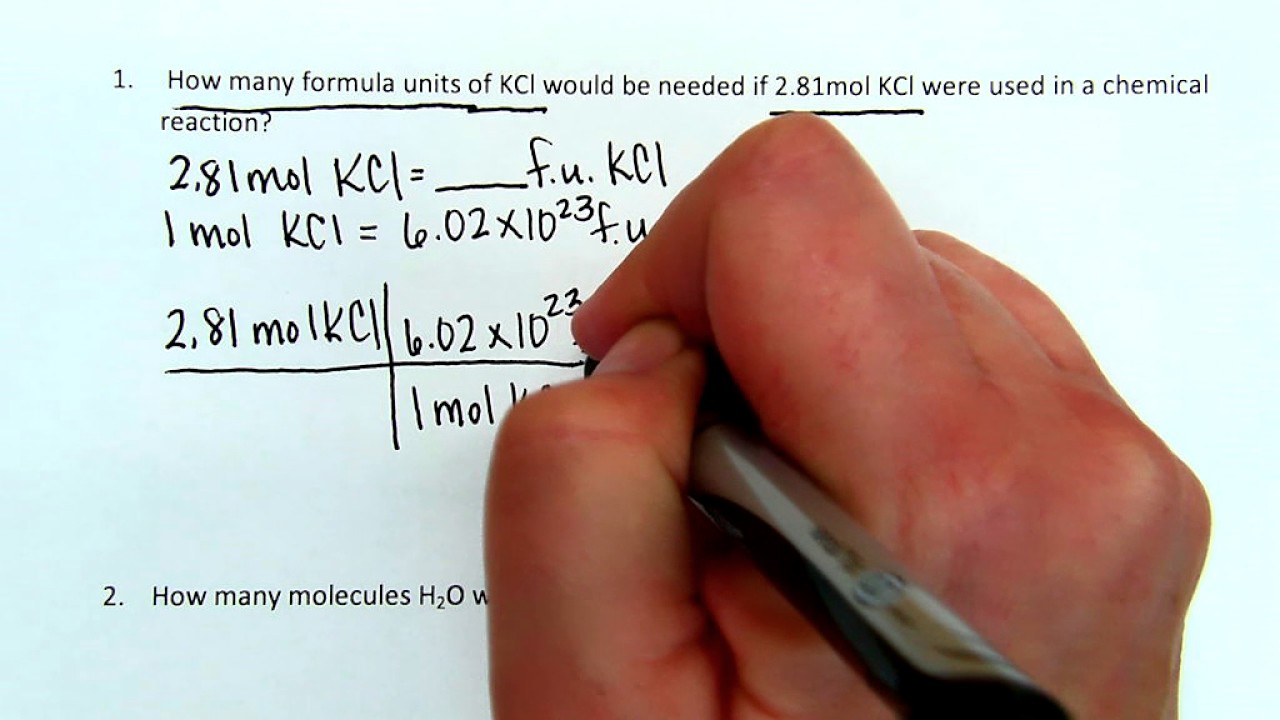 1. How many formula units of KCl would be needed if 2.81mol KCl were used in a chemical
reaction?
2.81 mol KCl = ___ f.u. KCl
1 mol KCl = 6.02×10²³ f.u
2.81 mol KCl | 6.02×10²³
1 mol
2. How many molecules H₂O